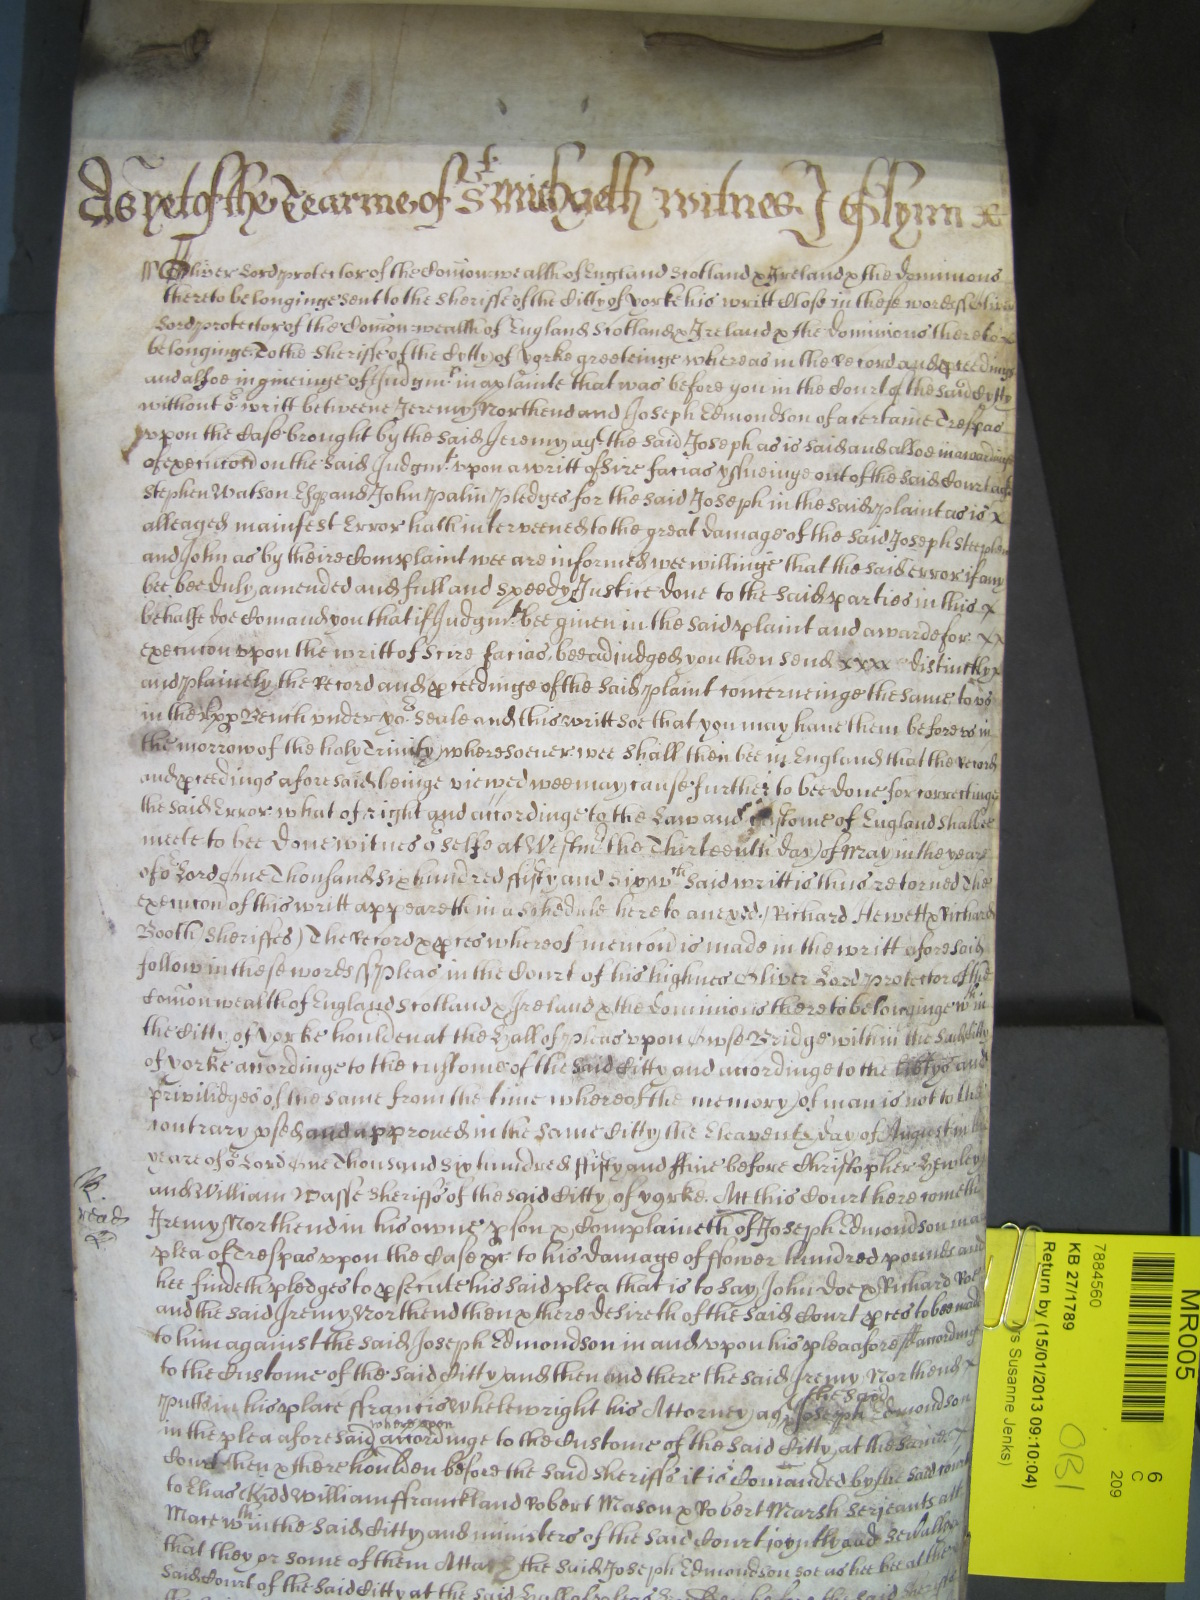 As yet of the Tearme of St Michaell witnes J Glynn &c
Oliver Lord protector of the Comonwealth of England Scotland & Ireland & the dominions
thereto belonginge sent to the Sheriffe of the Citty of yorke his writt Close in these words ss Oliver
Lord protector of the Comon wealth of England Scotland & Ireland & the dominions thereto x
belonginge To the Sheriffe of the Citty of yorke greetinge whereas in the Record and pceedings
and alsoe in giveinge of Judgmt in a plainte that was before you in the Court of the said Citty
without or writt betweene Jeremy Northend and Joseph Edmondson of a certaine Trespas
vpon the Case brought by the said Jeremy agt the said Joseph as is said and alsoe in awardinge
of execucon on the said Judgmt vpon a writt of Scire facias yssueinge out of the said Court agt
Stephen Watson Esq and John Palin pledges for the said Joseph in the said plaint as is x
alleaged manifest Error hath interveened to the great damage of the said Joseph Stephen
and John as by theire Complaint wee are informed wee willinge that the said error if any
bee bee duly amended and full and speedy Justice done to the said parties in this x
behalfe doe Comand you that if Judgmt bee given in the said plaint and award for xx
execucon vpon the writt of Scire facias bee adjudged you then send xxxx distinctly x
and plainely the Record and pceedinge of the said plaint concerneinge the same to vs
in the vpp Bench under yor Seale and this writt soe that you may have them before vs in
the morrow of the holy Trinity wheresoever wee shall then bee in England that the Record
and pceedings aforesaid beinge viewed wee may cause further to bee done for correctinge
the said Error what of right and accordinge to the Law and Custome of England shalbe
meete to bee done witnes or selfe at Westmr the Thirteenth day of May in the yeare
of or Lord One Thousand six hundred ffifty and six wch said writt is thus retorned The
execucon of this writt appeareth in a schedule hereto anexed / Richard Hewett & Richard
Booth Sheriffes / The Record & pces whereof mencon is made in the writt aforesaid
follow in these words ss Pleas in the Court of his highnes Oliver Lord protector of the
Comonwealth of England Scotland & Ireland & the dominions thereto belonginge wth in
the Citty of yorke houlden at the Hall of pleas vpon Owse Bridge within the said Citty
of yorke accordinge to the custome of the said Citty and accordinge to the libtyes and
priviledges of the same from the time whereof the memory of man is not to the
contrary vsed and approved in the same Citty the Eleaventh day of August in the
yeare of or Lord One Thousand six hundred ffifty and ffive before Christopher Hewley
and William Wasse Sheriffs of the said Citty of yorke. Att this Court here cometh
Jeremy Northend in his owne pson & Complaineth of Joseph Edmondson in a
plea of Trespas vpon the Case &c to his damage of ffower hundred pounds and
hee findeth pledges to psecute his said plea that is to say John Doe & Richard Roe
and the said Jeremy Northend then & there desireth of the said Court pces to bee made
to him against the said Joseph Edmondson in and vpon his plea aforesd accordinge
to the Custome of the said Citty and then and there the said Jeremy Northend x
putts in his place ffrancis Whelewright his Attorney agt the said Joseph Edmondson
in the plea aforesaid whereupon accordinge to the Custome of the said Citty at the same x
Court then & there houlden before the said Sheriffs it is Comanded by the said Court
to Elias Kidd William ffranckland Robert Mason & Robert Marsh Serjeants att
Mace wthin the said Citty and ministers of the said Court joyntly and severally
that they or some of them Attach the said Joseph Edmondson soe as hee bee at the
said Court of the said Citty at the said Hall of pleas
MR005
6
C
209
7884560
KB 27/1789
Return by (15/01/2013 09:10:04)
Mrs Susanne Jenks)